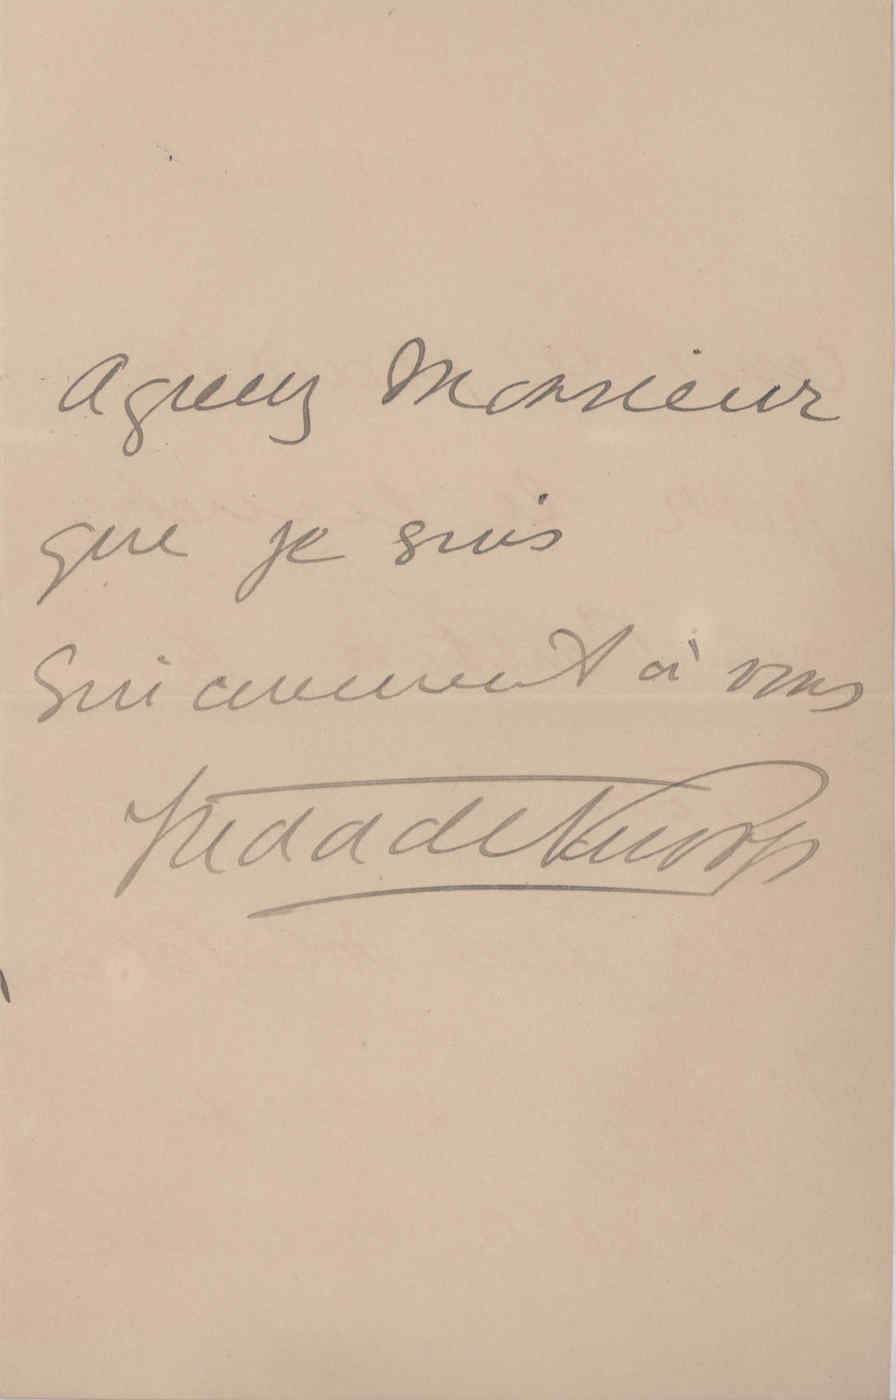 agreez Monsieur
que je suis
Sincerement à vous
Freda de